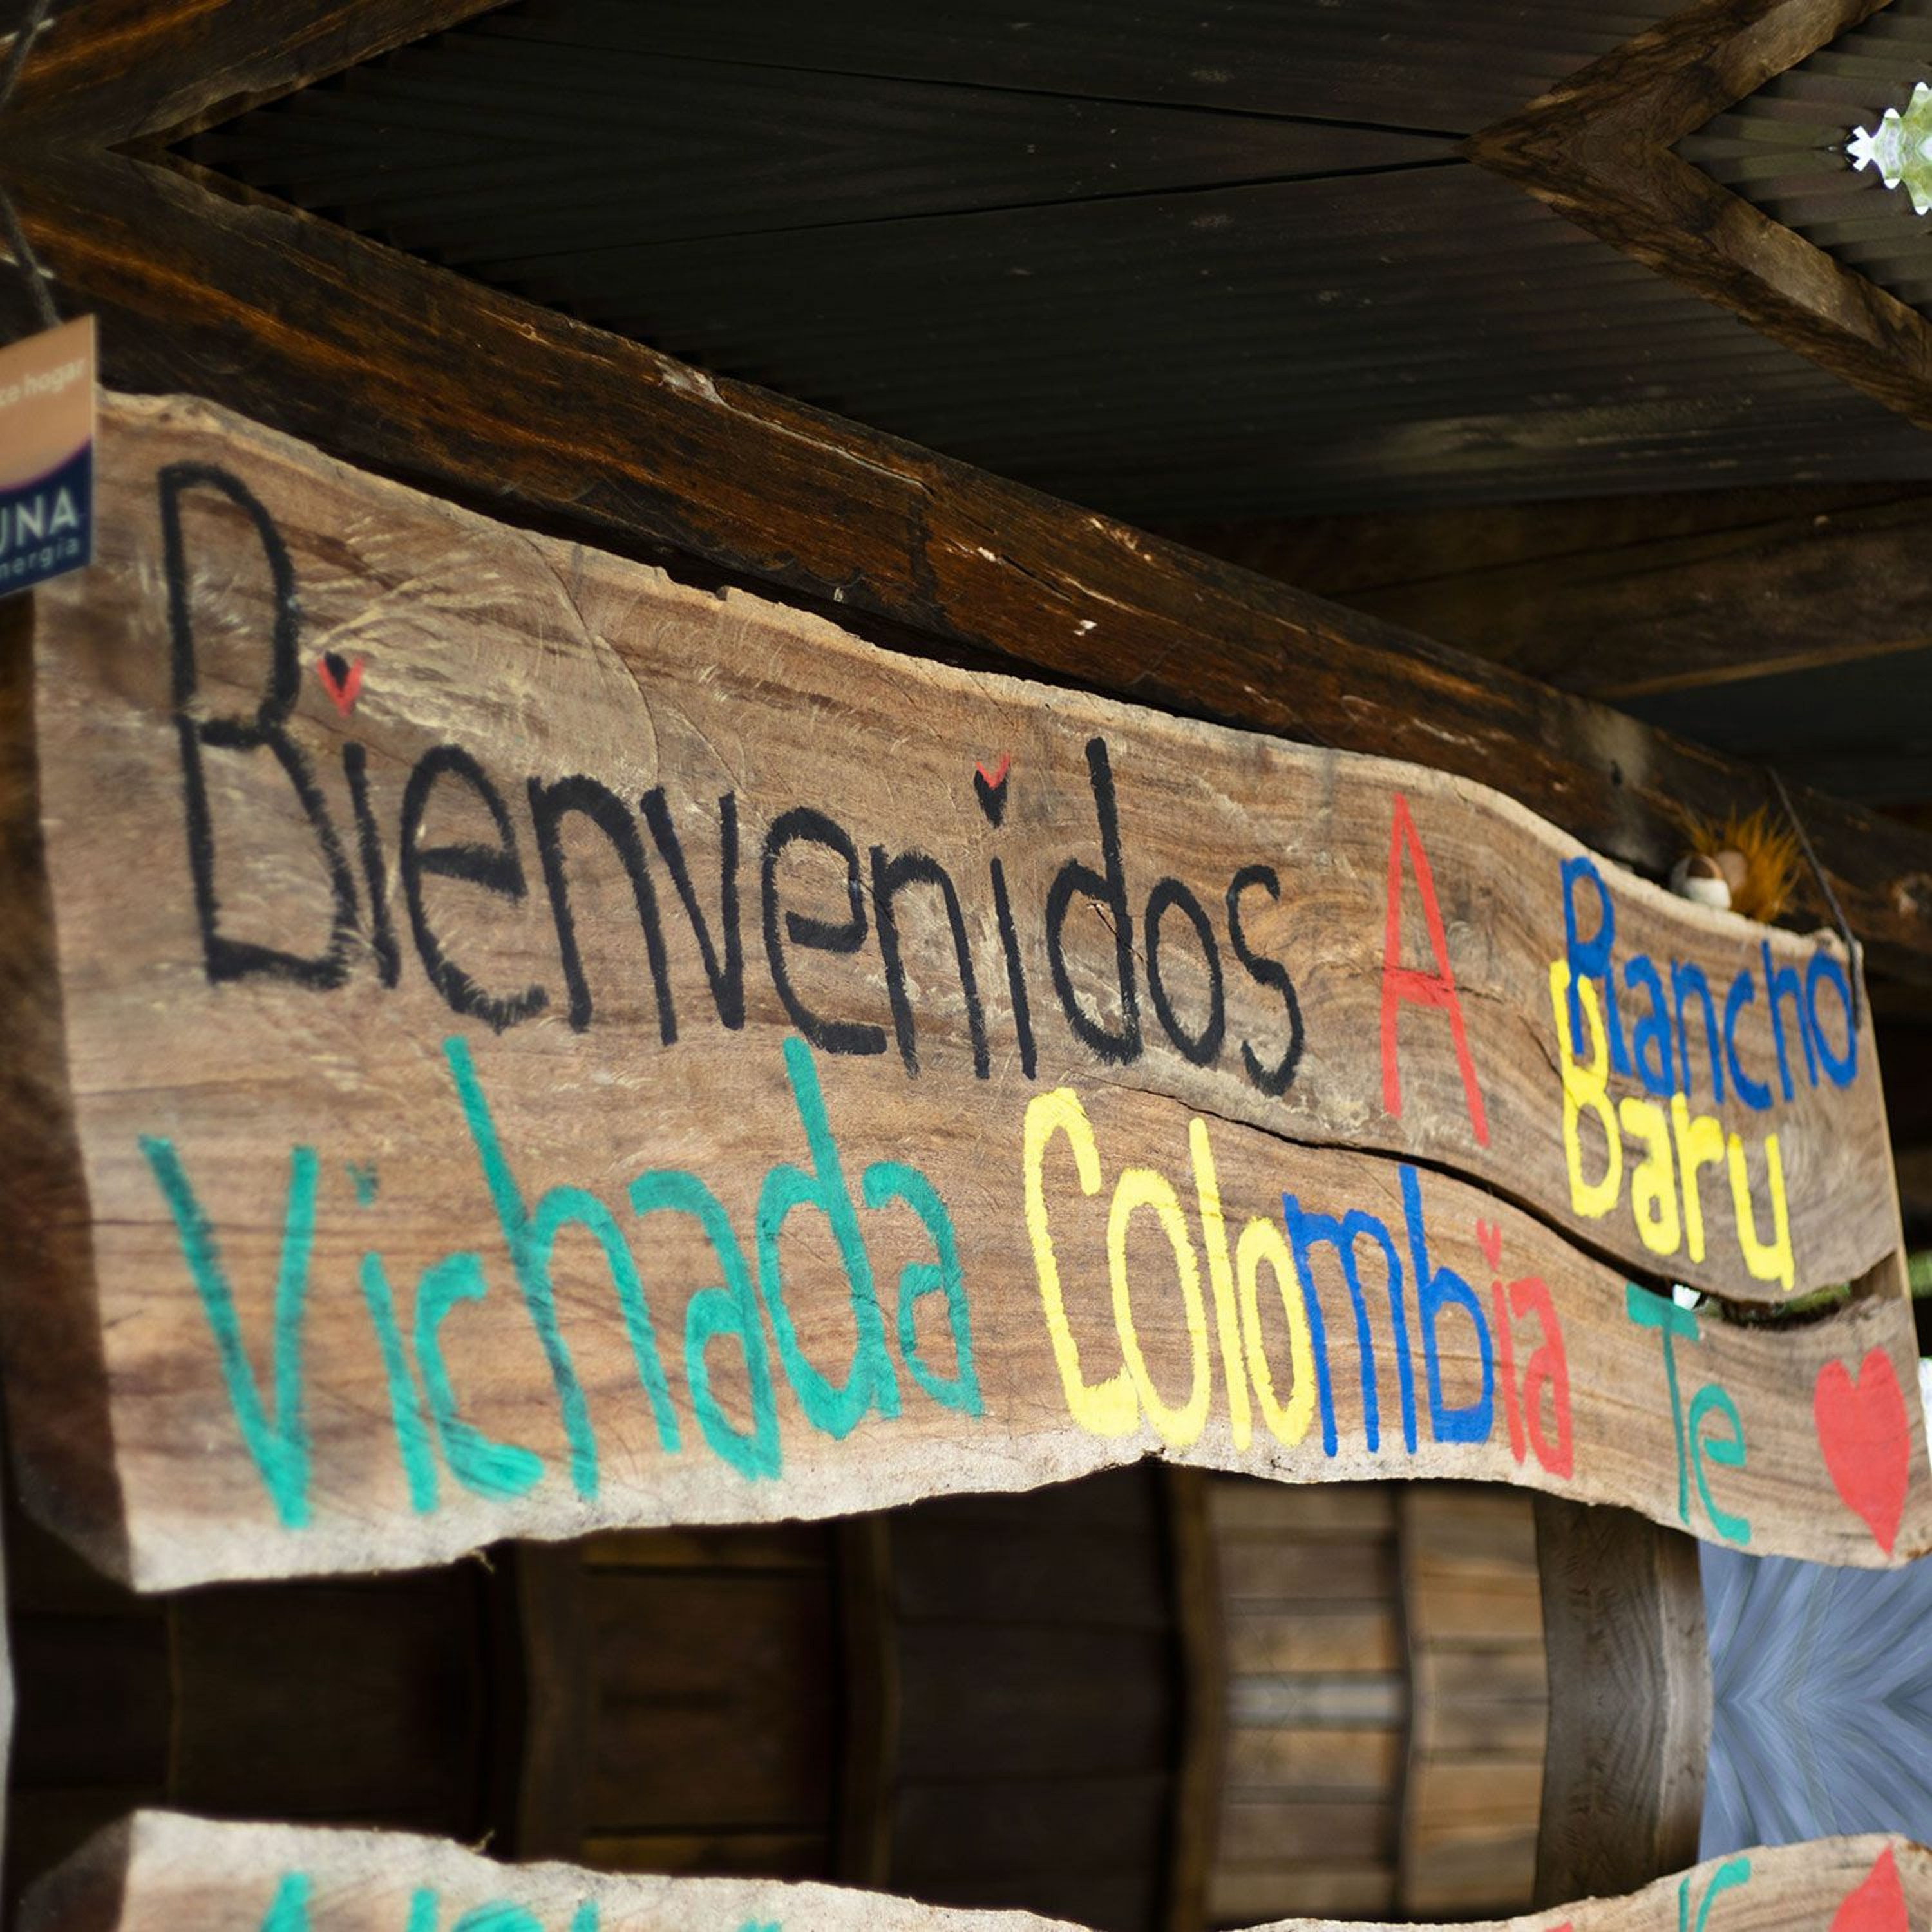 hogar
UNA
nergía
Bienvenidos A Rancho
Baru
Vichada Colombia Te ❤